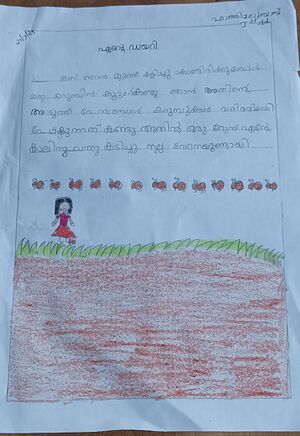 2/3/24
എന്റെ ഡയറി
ഇന്ന് ഞാൻ മുറ്റത്ത് കളിച്ചു കൊണ്ടിരിക്കുമ്പോൾ
ഒരു ഉറുമ്പിൻ കൂട്ടം കണ്ടു ഞാൻ അതിൻ്റെ
അടുത്ത് പോയപ്പോൾ ഉറുമ്പുകൾ വരിവരിയായി
പോകുന്നത് കണ്ടു. അതിൽ ഒരു ഉറുമ്പ് എൻ്റെ
കാലിനു വന്നു കടിച്ചു നല്ല വേദനയുണ്ടായി